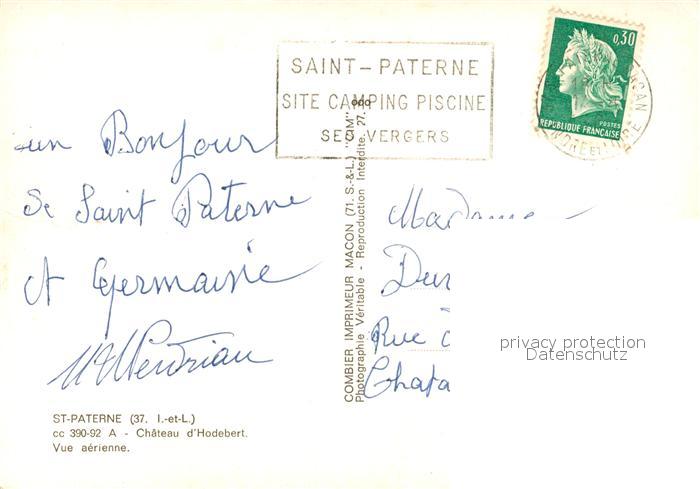 SAINT-PATERNE
SITE CAMPING PISCINE
SES VERGERS
0,30
POSTES
REPUBLIQUE FRANÇAISE
INDRE ET LOIRE
un Bonjour
de Saint Paterne
et Germaine
Madame
Dur
Rue
Chata
privacy protection
Datenschutz
COMBIER IMPRIMEUR MACON (71. S.-&-L.) "CIM"
Photographie Véritable - Reproduction Interdite. 77.
ST-PATERNE (37. I.-et-L.)
cc 390-92 A - Château d'Hodebert.
Vue aérienne.